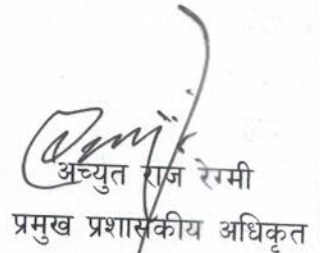 अच्युत राज रेग्मी
प्रमुख प्रशासकीय अधिकृत